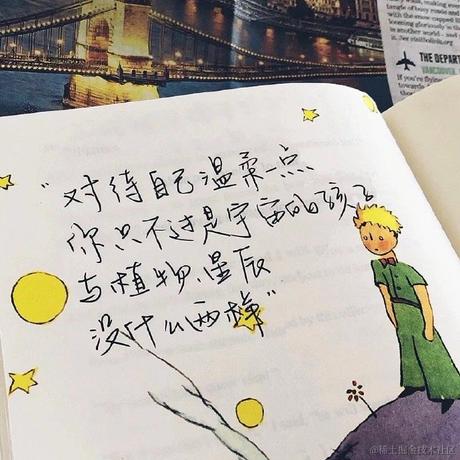 “对待自己温柔一点
你只不过是宇宙的孩子
与植物、星辰
没什么两样”
THE DEPART
VANCOUVER
If you're
@稀土掘金技术社区